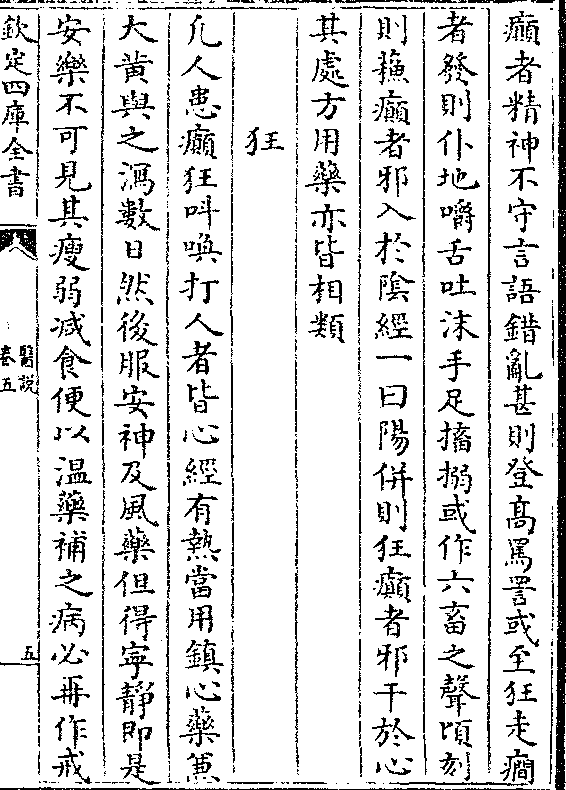 癲者精神不守言語錯亂甚則登髙罵詈或至狂走癎
者發則仆地嚼舌吐沫手足搐搦或作六畜之聲頃刻
則蘓癲者邪入於陰經一曰陽併則狂癲者邪干於心
其處方用藥亦皆相類
狂
凡人患癲狂叫喚打人者皆心經有熱當用鎮心藥兼
大黄與之瀉數日然後服安神及風藥但得寧靜即是
安樂不可見其瘦弱減食便以温藥補之病必再作戒
欽定四庫全書
醫説
卷五
五